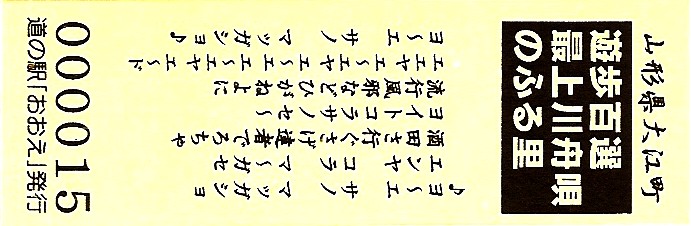 山形県大江町
遊歩百選
最上川舟唄
のふる里
♪ヨ〜エ サノ マッガショ
エンヤ コラマ〜ガセ
酒田さ行ぐさげ達者でろちゃ
ヨイトコラサノセ〜
流行風邪などひがねよに
エエヤエ〜エヤエ〜エヤエ〜ド
ヨ〜エ サノ マッガショ♪
000015
道の駅「おおえ」発行